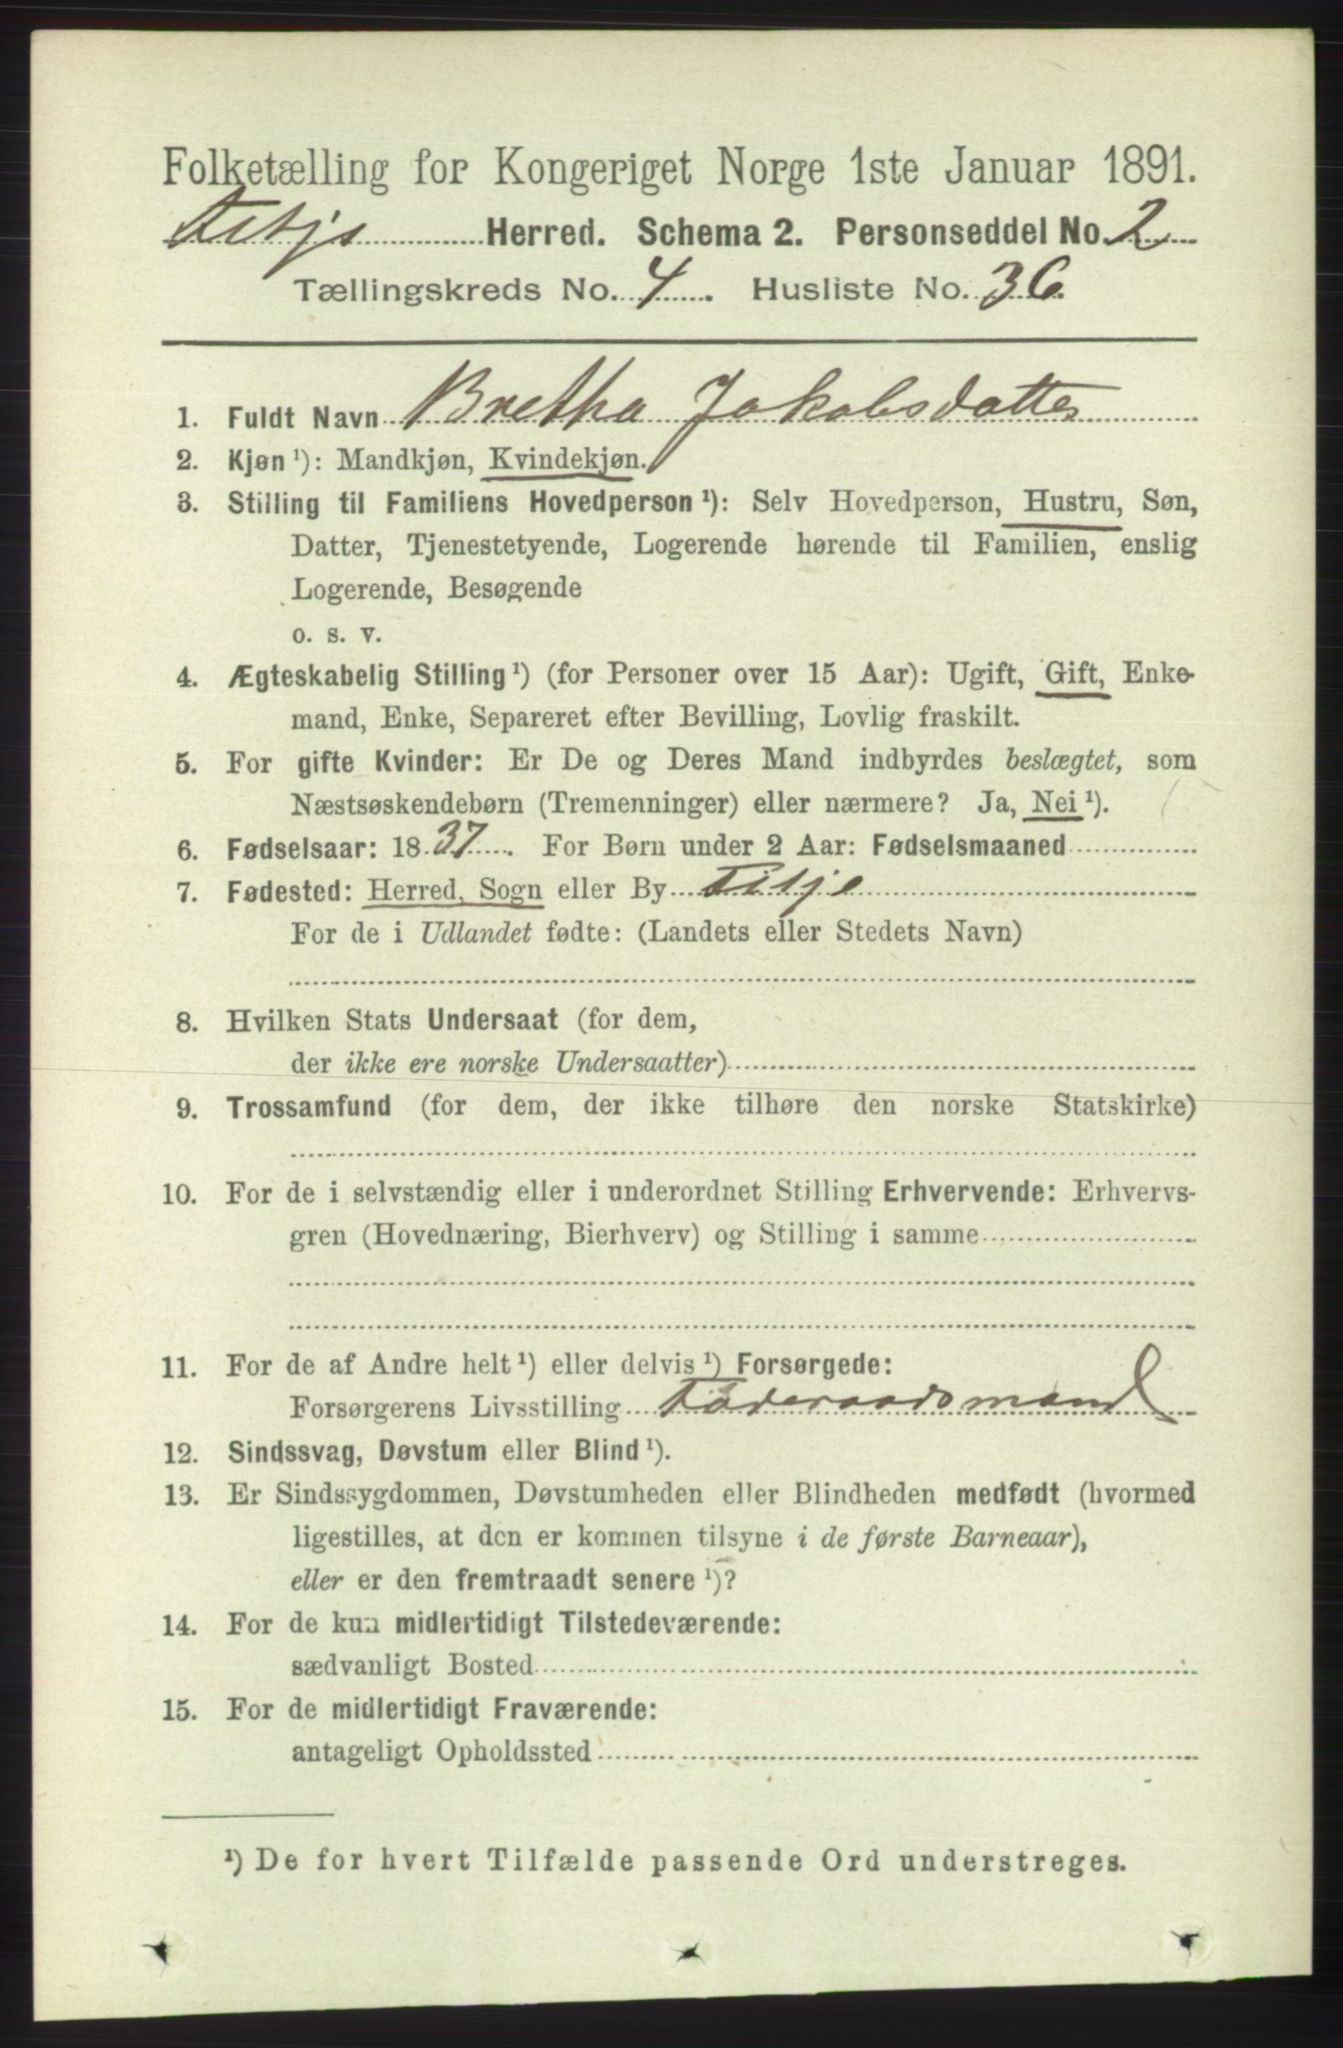 Folketælling for Kongeriget Norge 1ste Januar 1891.
Fitje Herred. Schema 2. Personseddel No. 2
Tællingskreds No. 4. Husliste No. 36.
1. Fuldt Navn Bretha Jakobsdatter
2. Kjøn ¹): Mandkjøn, Kvindekjøn.
3. Stilling til Familiens Hovedperson ¹): Selv Hovedperson, Hustru, Søn,
Datter, Tjenestetyende, Logerende hørende til Familien, enslig
Logerende, Besøgende
o. s. v.
4. Ægteskabelig Stilling ¹) (for Personer over 15 Aar): Ugift, Gift, Enke-
mand, Enke, Separeret efter Bevilling, Lovlig fraskilt.
5. For gifte Kvinder: Er De og Deres Mand indbyrdes beslægtet, som
Næstsøskendebørn (Tremenninger) eller nærmere? Ja, Nei ¹).
6. Fødselsaar: 1837. For Børn under 2 Aar: Fødselsmaaned
7. Fødested: Herred, Sogn eller By Fitje
For de i Udlandet fødte: (Landets eller Stedets Navn)
8. Hvilken Stats Undersaat (for dem,
der ikke ere norske Undersaatter)
9. Trossamfund (for dem, der ikke tilhøre den norske Statskirke)
10. For de i selvstændig eller i underordnet Stilling Erhvervende: Erhvervs-
gren (Hovednæring, Bierhverv) og Stilling i samme
11. For de af Andre helt ¹) eller delvis ¹) Forsørgede:
Forsørgerens Livsstilling Føderaadsmand
12. Sindssvag, Døvstum eller Blind ¹).
13. Er Sindssygdommen, Døvstumheden eller Blindheden medfødt (hvormed
ligestilles, at den er kommen tilsyne i de første Barneaar),
eller er den fremtraadt senere ¹)?
14. For de kun midlertidigt Tilstedeværende:
sædvanligt Bosted
15. For de midlertidigt Fraværende:
antageligt Opholdssted
¹) De for hvert Tilfælde passende Ord understreges.